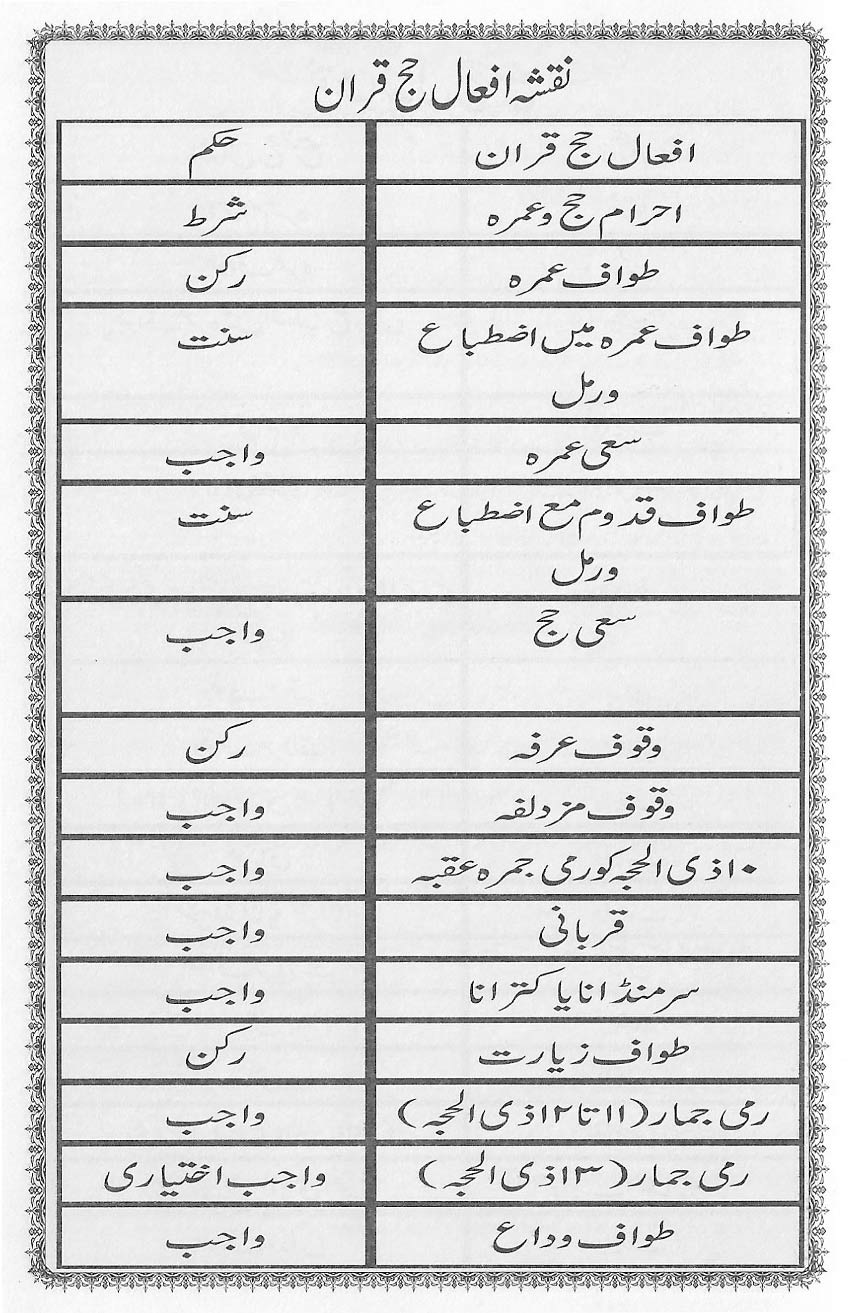 نقشہ افعال حج قران
افعال حج قران حکم
احرام حج وعمرہ شرط
طواف عمرہ رکن
طواف عمرہ میں اضطباع سنت
ورمل
سعی عمرہ واجب
طواف قدوم مع اضطباع سنت
ورمل
سعی حج واجب
وقوف عرفہ رکن
وقوف مزدلفہ واجب
۱۰ذی الحجہ کورمی جمرہ عقبہ واجب
قربانی واجب
سرمنڈانایا کترانا واجب
طواف زیارت رکن
رمی جمار(۱۱تا۱۲ذی الحجہ) واجب
رمی جمار(۱۳ذی الحجہ) واجب اختیاری
طواف وداع واجب